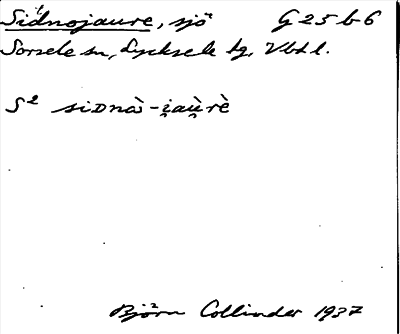 Sidnojaure, sjö G 25 b 6
Sorsele sn, Lycksele lg, Vbtl.
S² siDnà-i̯au̯rè
Björn Collinder 1937